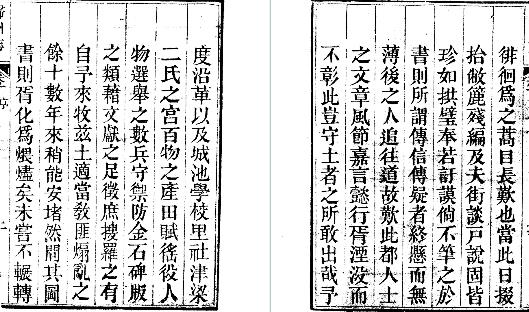 度沿革以及城池學校里社津梁
二氏之宮百物之產田賦徭役人
物選舉之數兵守禦防金石碑版
之類藉文獻之足徵庶搜羅之有
自予來牧茲土適當敎匪煽亂之
餘十數年來稍能安堵然閱其圖
書則胥化爲煨燼矣未嘗不輾轉
徘徊爲之蒿目長歎也當此日掇
拾敝簏殘編及夫街談戸說固皆
珍如拱璧奉若訏謨倘不筆之於
書則所謂傳信傳疑者終懸而無
薄後之人追往道故歎此都人士
之文章風節嘉言懿行胥湮没而
不彰此豈守土者之所敢出哉予